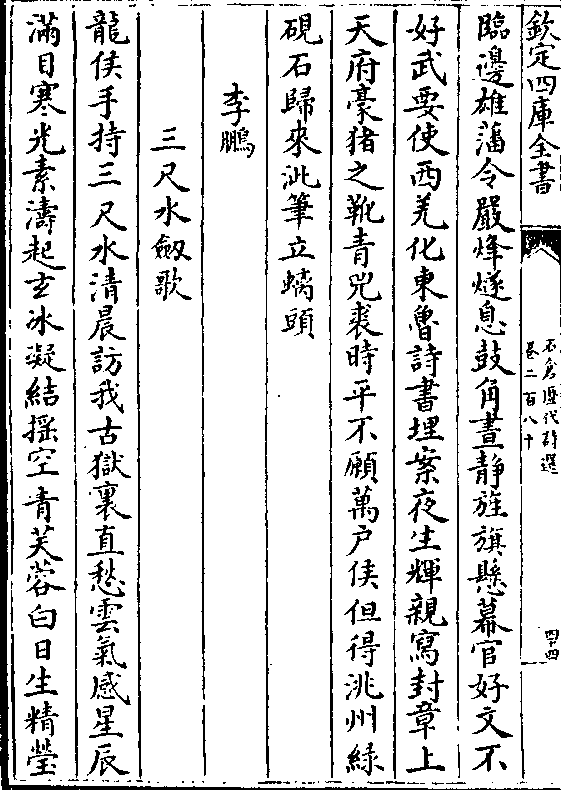 欽定四庫全書
石倉歷代詩選
卷二百八十
四十四
臨邊雄藩令嚴烽燧息鼓角晝静旌旗懸幕官好文不
好武要使西羌化東魯詩書埋案夜生輝親寫封章上
天府豪猪之靴青兕裘時平不願萬户侯但得洮州綠
硯石歸來泚筆立螭頭
李鵬
三尺水劒歌
龍侯手持三尺水清晨訪我古獄裏直愁雲氣感星辰
滿目寒光素濤起玄冰凝結摇空青芙蓉白日生精瑩